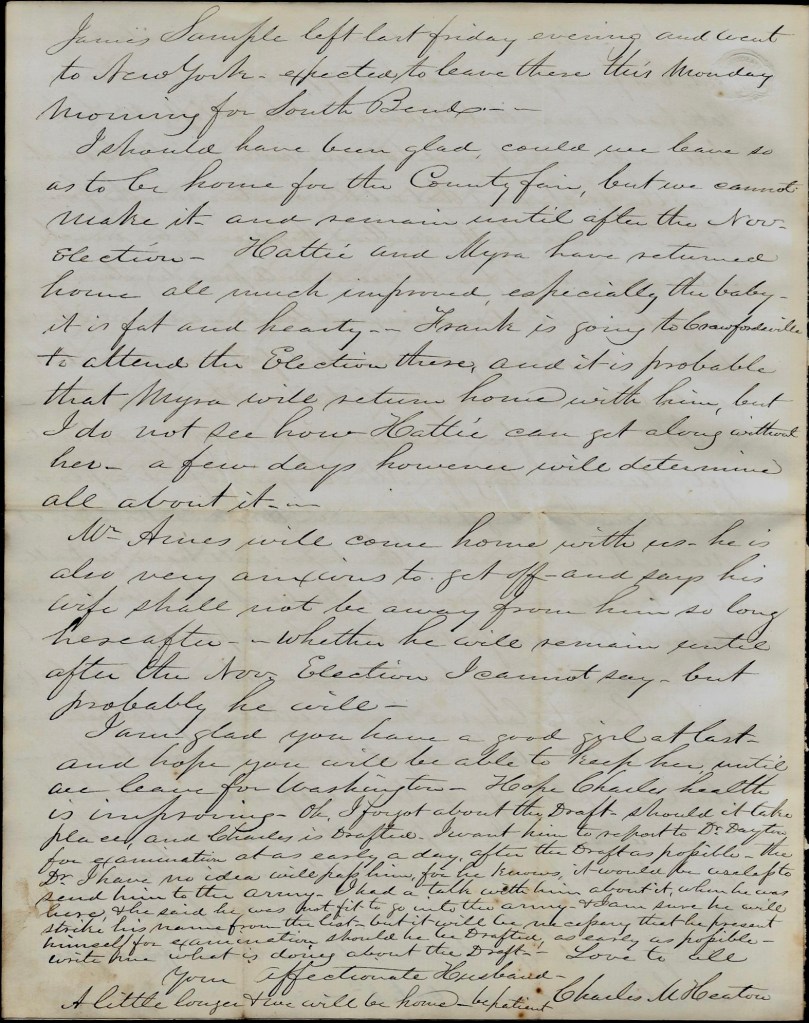 James Sample left last friday evening and went
to New York - expected to leave there this Monday
Morning for South Bend - -
I should have been glad, could we leave so
as to be home for the County fair, but we cannot
make it - and remain until after the Nov -
Election - Hattie and Myra have returned
home all much improved, especially the baby -
it is fat and hearty - - Frank is going to Crawfordsville
to attend the Election there, and it is probable
that Myra will return home with him, but
I do not see how Hattie can get along without
her - a few days however will determine
all about it - -
Mr Ames will come home with us - he is
also very anxious to get off - and says his
wife shall not be away from him so long
hereafter - - whether he will remain until
after the Nov. Election I cannot say - but
probably he will -
I am glad you have a good girl at last -
and hope you will be able to keep her, until
we leave for Washington - Hope Charles health
is improving - Oh, I forgot about the Draft - should it take
place, and Charles is Drafted - I want him to report to Dr. Dayton,
for examination at as early a day, after the Draft as possible - the
Dr. I have no idea will pass him, for he knows, it would be useless to
send him to the army - I had a talk with him about it, when he was
here, & he said he was not fit to go into the army & I am sure he will
strike his name from the list - but it will be necessary that he present
himself for examination should he be Drafted, as early as possible -
write me what is doing about the Draft - - Love to all
Your affectionate Husband -
A little longer & we will be home - be patient Charles M Heaton